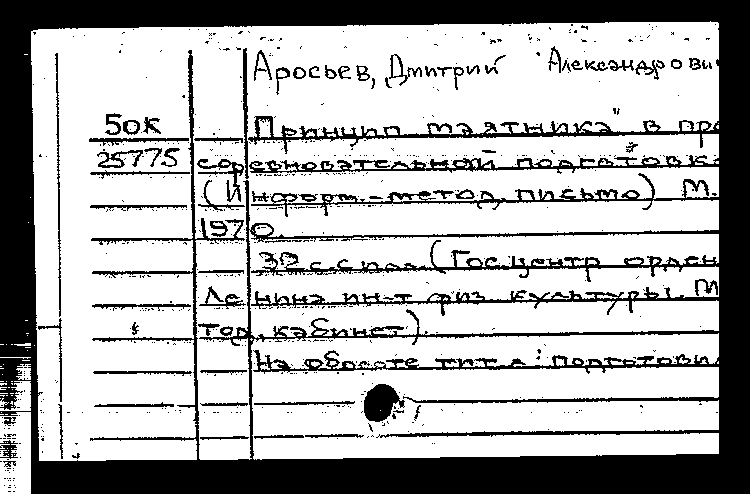 Аросьев, Дмитрий Александрови
50к Принцип маятника" в пре
25775 соревновательной подготовк
(Информ.-метод. письмо) М.
1970.
32 с. с илл. (Гос. центр орден
Ленина ин-т физ. культуры. М
тод. кабинет)
На обороте тит. л: подготовил